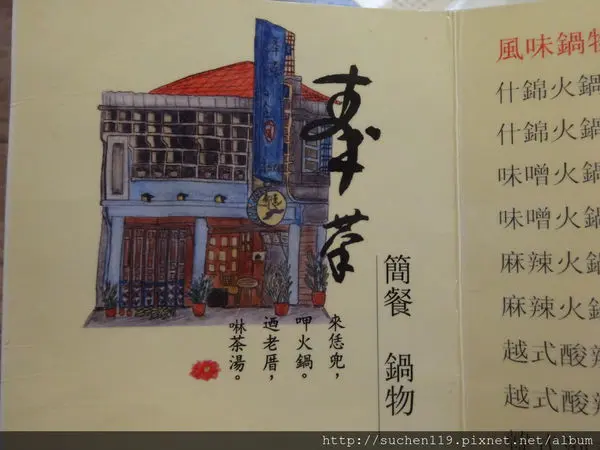 簡餐 鍋物
來恁兜，
呷火鍋。
迺老厝，
啉茶湯。
風味鍋物
什錦火鍋
什錦火鍋
味噌火鍋
味噌火鍋
麻辣火鍋
麻辣火鍋
越式酸辣
越式酸辣
http://suchen119.pixnet.net/album